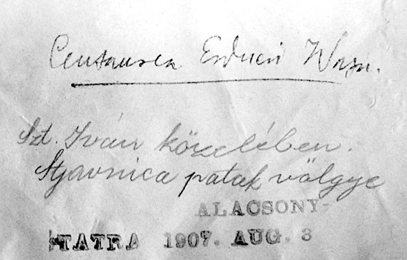 Centaurea Erdneri Wagn.
Szt. Iván közelében.
Stjavnica patak völgye
ALACSONY-
TATRA 1907. AUG. 3